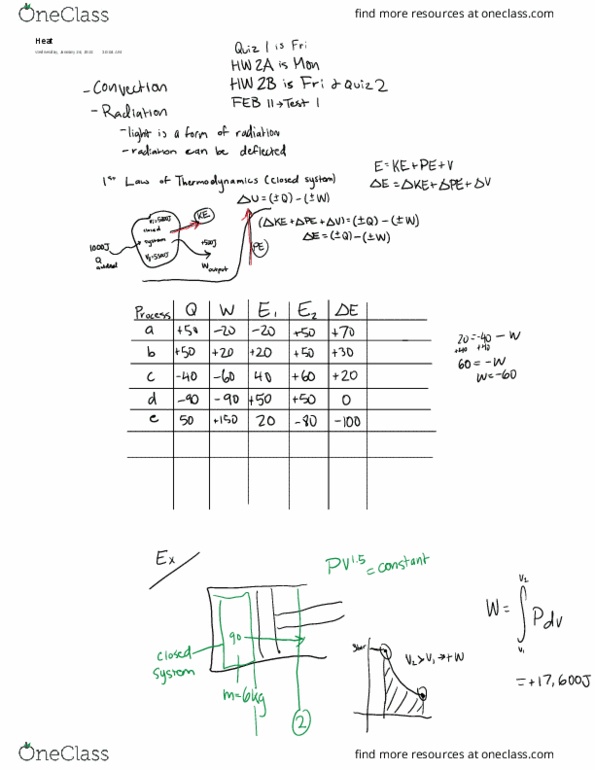 OneClass
find more resources at oneclass.com
Heat
Quiz 1 is Fri
HW2A is Mon
HW 2B is Fri & Quiz 2
FEB 11 → Test 1
- Convection
- Radiation
- light is a form of radiation
- radiation can be deflected
E = KE + PE + V
ΔE = ΔKE + ΔPE + ΔV
1st Law of Thermodynamics (closed system)
ΔU = (±Q) - (±W)
(ΔKE + ΔPE + ΔU) = (±Q) - (±W)
ΔE = (±Q) - (±W)
KE
closed
system
1000J
Q added
+500J
W output
PE
Process Q W E1 E2 ΔE
a +50 -20 -20 +50 +70
b +50 +20 +20 +50 +30
c -40 -60 40 +60 +20
d -90 -90 +50 +50 0
e 50 +150 20 -80 -100
20 = -40 - W
+40 +40
60 = -W
W = -60
Ex
PV^1.5 = constant
90
closed
system
m = 6kg
2
V2 > V1 → + W
W = ∫ V1 V2 P dv
= +17,600J
OneClass
find more resources at oneclass.com